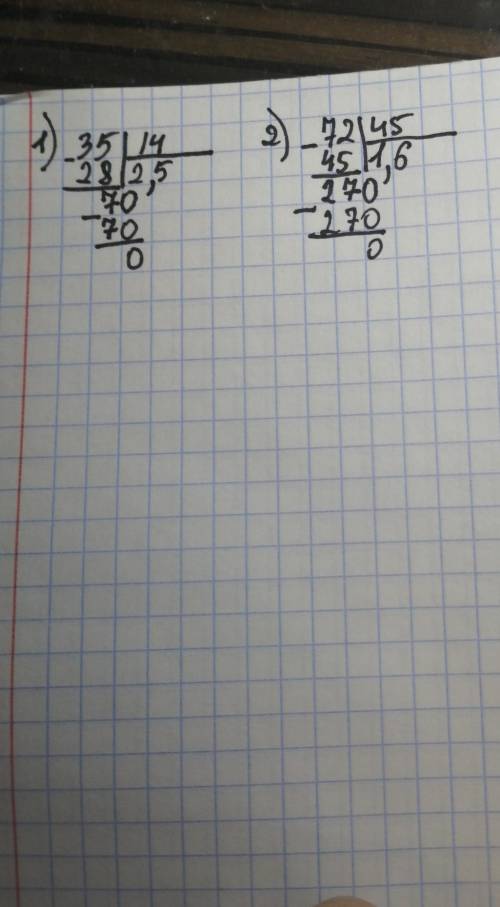 1) - 35 | 14
28 | 2,5
70
- 70
0
2) - 72 | 45
45 | 1,6
270
- 270
0